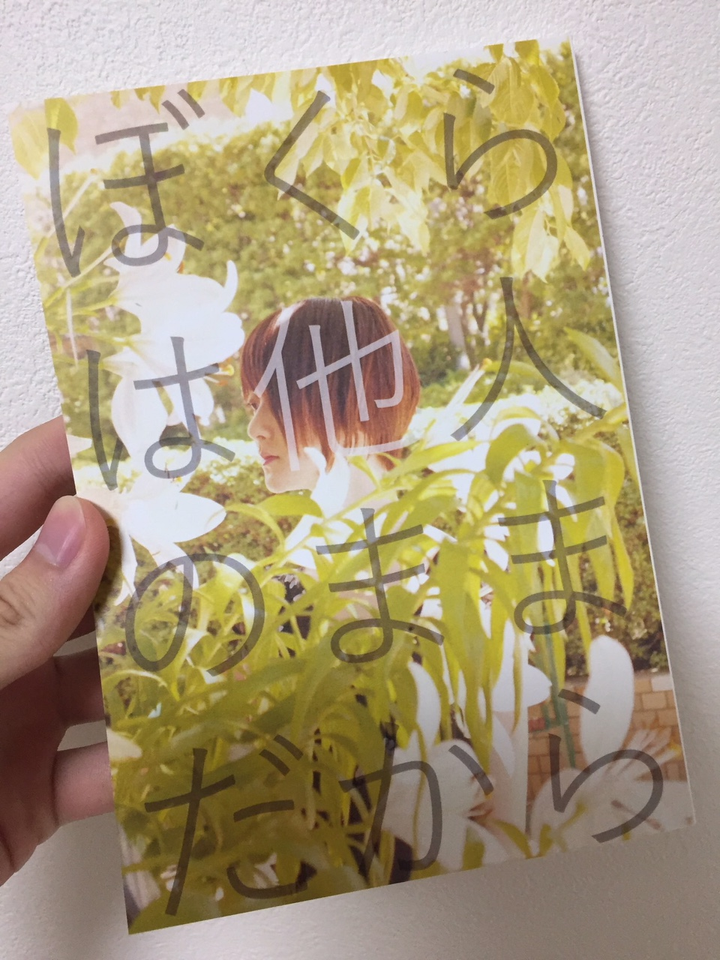 ぼくら
は他人
のまま
だから